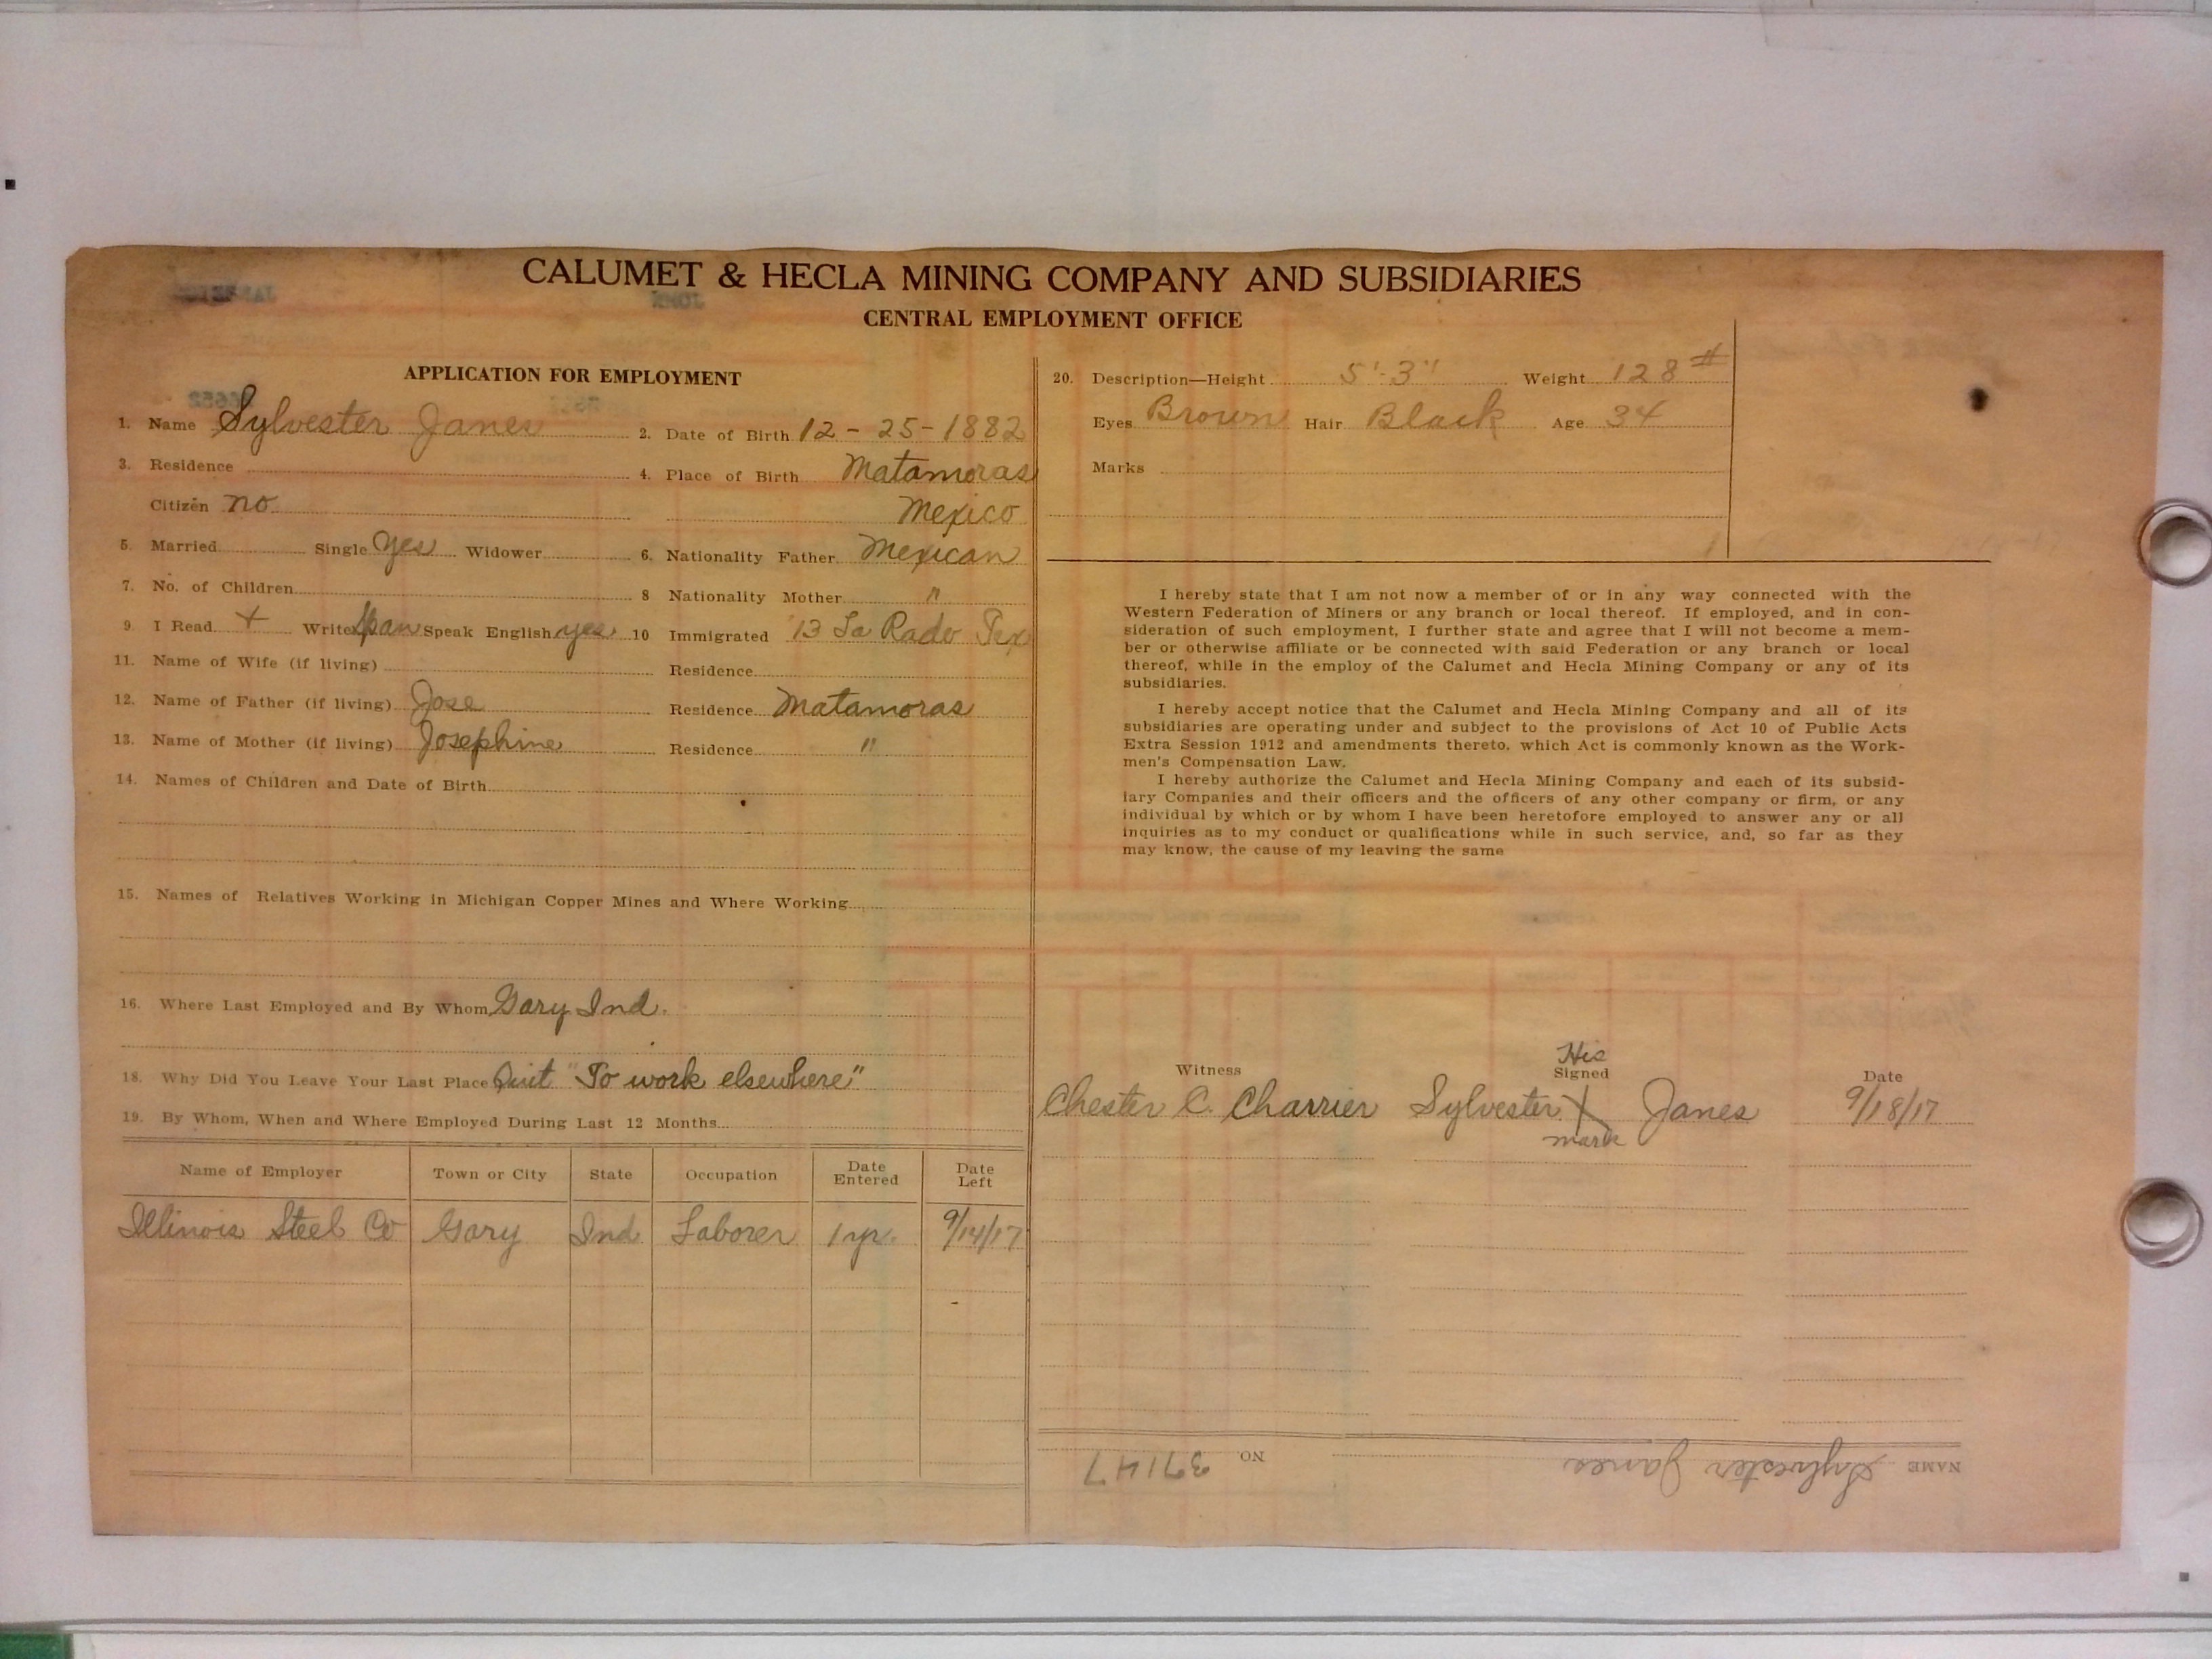 CALUMET & HECLA MINING COMPANY AND SUBSIDIARIES
CENTRAL EMPLOYMENT OFFICE
APPLICATION FOR EMPLOYMENT
1. Name Sylvester Janes 2. Date of Birth 12 - 25 - 1882
3. Residence 4. Place of Birth Matamoras
Citizen no Mexico
5. Married Single yes Widower 6. Nationality Father Mexican
7. No. of Children 8 Nationality Mother "
9. I Read + Write Span Speak English yes 10 Immigrated '13 La Rado Tex
11. Name of Wife (if living) Residence
12. Name of Father (if living) Jose Residence Matamoras
13. Name of Mother (if living) Josephine Residence "
14. Names of Children and Date of Birth
15. Names of Relatives Working in Michigan Copper Mines and Where Working
16. Where Last Employed and By Whom Gary Ind.
18. Why Did You Leave Your Last Place Quit "To work elsewhere"
19. By Whom, When and Where Employed During Last 12 Months
Name of Employer Town or City State Occupation Date Entered Date Left
Illinois Steel Co Gary Ind Laborer 1 yr. 9/14/17
20. Description—Height 5'-3" Weight 128 #
Eyes Brown Hair Black Age 34
Marks
I hereby state that I am not now a member of or in any way connected with the
Western Federation of Miners or any branch or local thereof. If employed, and in con-
sideration of such employment, I further state and agree that I will not become a mem-
ber or otherwise affiliate or be connected with said Federation or any branch or local
thereof, while in the employ of the Calumet and Hecla Mining Company or any of its
subsidiaries.
I hereby accept notice that the Calumet and Hecla Mining Company and all of its
subsidiaries are operating under and subject to the provisions of Act 10 of Public Acts
Extra Session 1912 and amendments thereto, which Act is commonly known as the Work-
men's Compensation Law.
I hereby authorize the Calumet and Hecla Mining Company and each of its subsid-
iary Companies and their officers and the officers of any other company or firm, or any
individual by which or by whom I have been heretofore employed to answer any or all
inquiries as to my conduct or qualifications while in such service, and, so far as they
may know, the cause of my leaving the same
His
Witness Signed Date
Chester C. Charrier Sylvester X Janes 9/18/17
mark
NAME Sylvester Janes NO. 37147